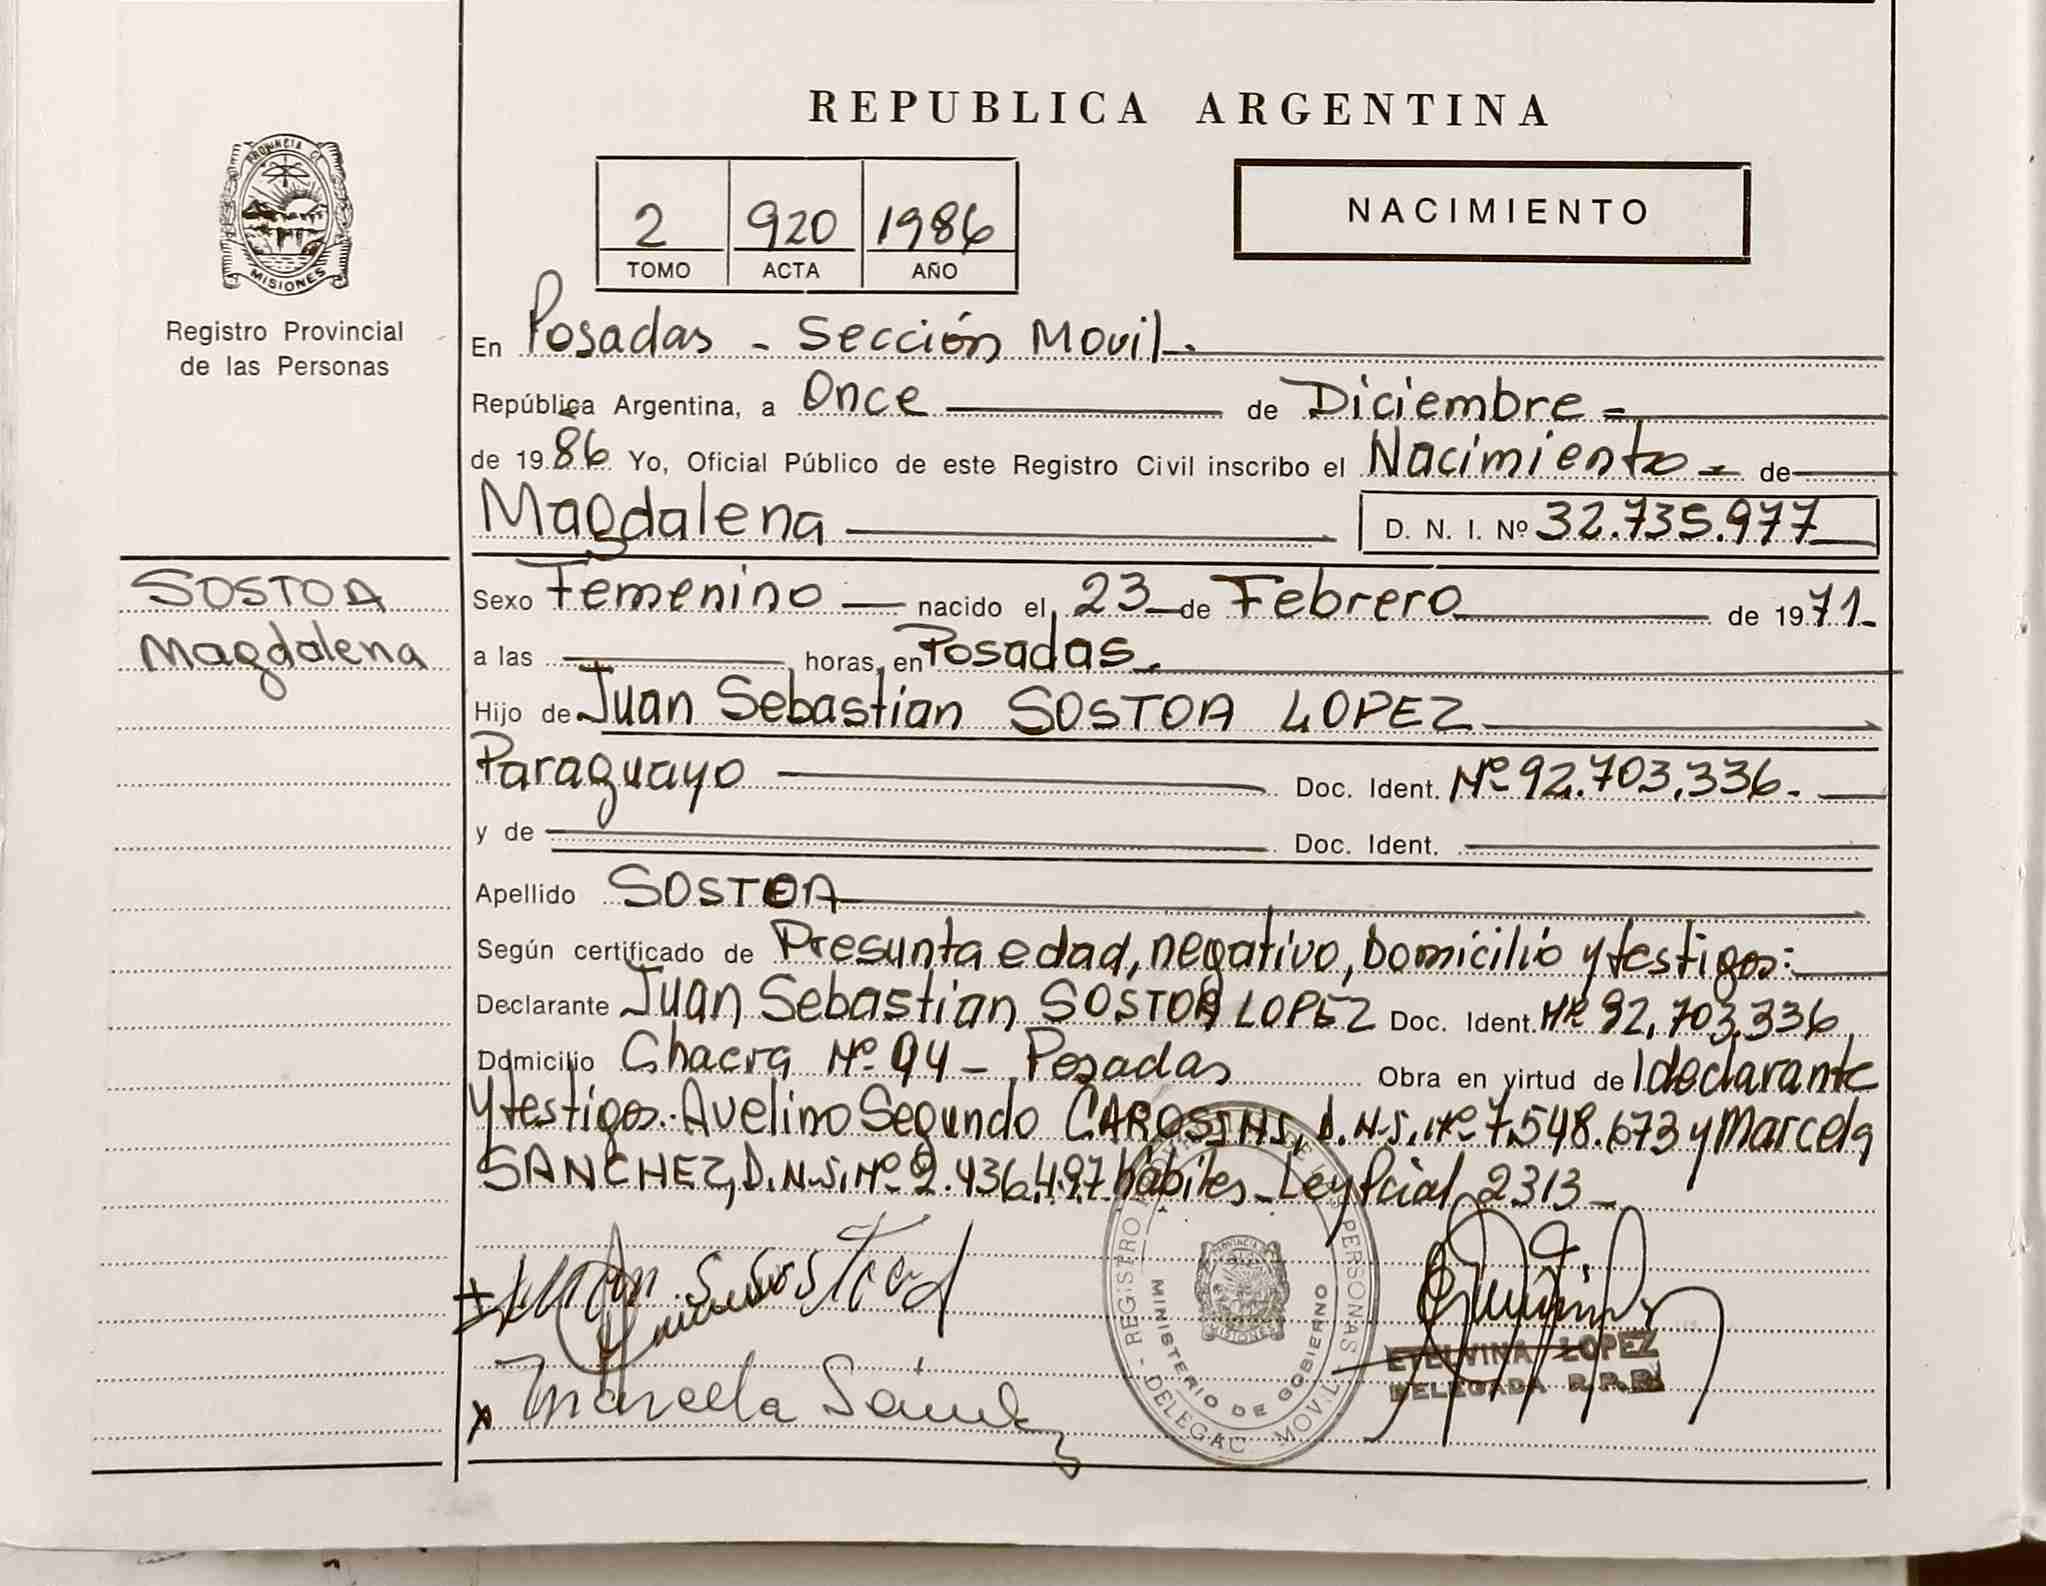 REPUBLICA ARGENTINA
PROVINCIA DE
MISIONES
Registro Provincial
de las Personas
2 920 1986
TOMO ACTA AÑO
NACIMIENTO
En Posadas - Sección Movil -
República Argentina, a Once de Diciembre =
de 1986 Yo, Oficial Público de este Registro Civil inscribo el Nacimiento = de
Magdalena D. N. I. Nº 32.735.977
SOSTOA
Magdalena
Sexo Femenino nacido el 23 de Febrero de 1971.
a las horas, en Posadas.
Hijo de Juan Sebastian SOSTOA LOPEZ
Paraguayo Doc. Ident. Nº 92.703.336.
y de Doc. Ident.
Apellido SOSTOA
Según certificado de Presunta edad, negativo, Domicilio y testigos:
Declarante Juan Sebastian SOSTOA LOPEZ Doc. Ident. Nº 92.703.336
Domicilio Chacra Nº 94 - Posadas Obra en virtud de l declarante
y testigos. Avelino Segundo D.N.I. Nº 7.548.673 y Marcela
SANCHEZ, D.N.I. Nº 2.436.497 hábiles - Ley Pcial 2313 -
REGISTRO PERSONAS
MINISTERIO DE GOBIERNO
DELEGAC MOVIL
PROVINCIA
MISIONES
ETELVINA LOPEZ
DELEGADA R.P.P.
x Marcela